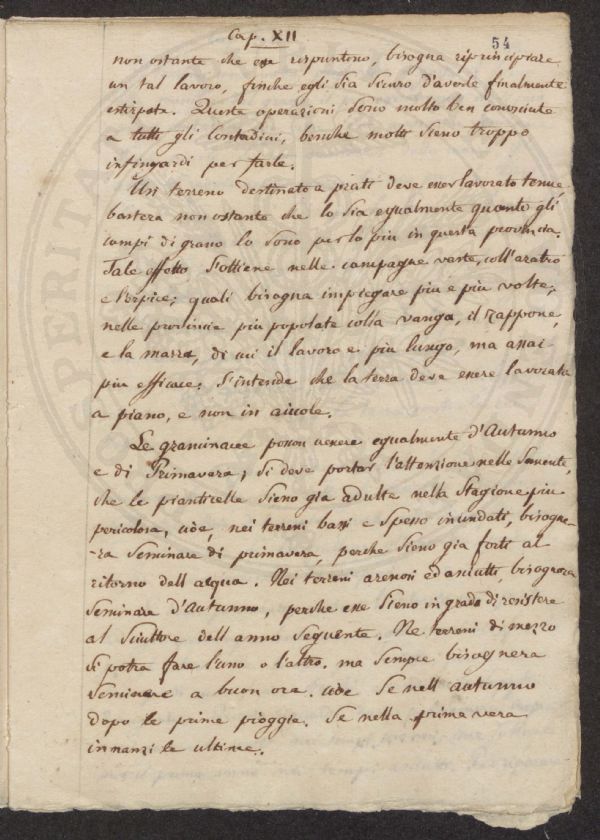 Cap. XII
54
non ostante che esse rispuntino, bisogna riprincipiare
un tal lavoro, finche egli sia sicuro d'averle finalmente
estirpate. Queste operazioni sono molto ben conosciute
a tutti gli Contadini, benche molti sieno troppo
infingardi per farle.
Un terreno destinato a prati deve esser lavorato tenue,
bastera non ostante che lo sia egualmente quanto gli
campi di grano lo sono per lo piu in questa provincia.
Tale effetto s'ottiene nelle campagne vaste, coll'aratro
e l'erpice; quali bisogna impiegare piu e piu volte;
nelle provincie piu popolate colla vanga, il zappone,
e la marra, di cui il lavoro e piu lungo, ma assai
piu efficace; s'intende che la terra deve essere lavorata
a piano, e non in aiuole.
Le graminacee possou venire egualmente d'Autunno
e di Primavera; si deve portar l'attenzione nelle semente,
che le pianticelle sieno gia adulte nella stagione piu
pericolosa, cioè, nei terreni bassi e spesso inundati, bisogne-
-ra seminare di primavera, perche sieno gia forti al
ritorno dell acqua. Nei terreni arenosi ed asciutti, bisognera
seminare d'Autunno, perche esse sieno in grado di resistere
al sciuttore dell anno seguente. Ne terreni di mezzo
si potra fare l'uno o l'altro. ma sempre bisognera
seminare a buon ora. cioe se nell autunno
dopo le prime pioggie. Se nella primavera
innanzi le ultime.